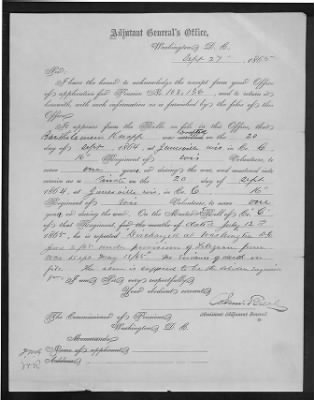 Adjutant General's Office,
Washington, D. C.
Sept 27" 1865
Sir:
I have the honor to acknowledge the receipt from your Office
of application for Pension No. 102,186, and to return it
herewith, with such information as is furnished by the files of this
Office.
It appears from the Rolls on file in this Office, that
Knapp was enrolled on the 20
day of Sept, 1864, at Janesville Wis, in Co. C,
16" Regiment of Wis Volunteers, to
serve one years, or during the war, and mustered into
service as a Private on the 20 day of Sept
1864, at Janesville Wis, in Co. C 16"
Regiment of Wis Volunteers, to serve one
years, or during the war. On the Muster Roll of Co. "C"
of that Regiment, for the months of dated July 12"
1865, he is reported Discharged at Washington DC
June 2/65 under provisions of Telegram from
War Dept May 18/65 No evidence of in
file. He is supposed to be the soldier inquired
for
I am, Sir, very respectfully,
Your obedient servant,
Assistant Adjutant General.
The Commissioner of Pensions,
Washington, D. C.
Memoranda:
Name of applicant,
Address,